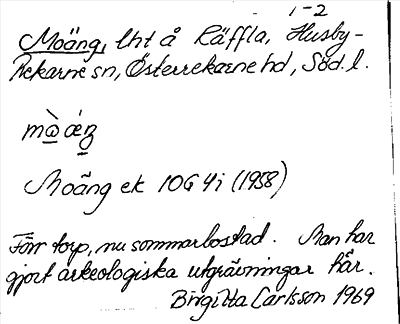 1-2
Moäng, lht å Räffla, Husby-
Rekarne sn, Österrekarne hd, Söd. l.
Moäng ek 10G 4i (1958)
Förr torp, nu sommarbostad. Man har
gjort arkeologiska utgrävningar här.
Birgitta Carlsson 1969